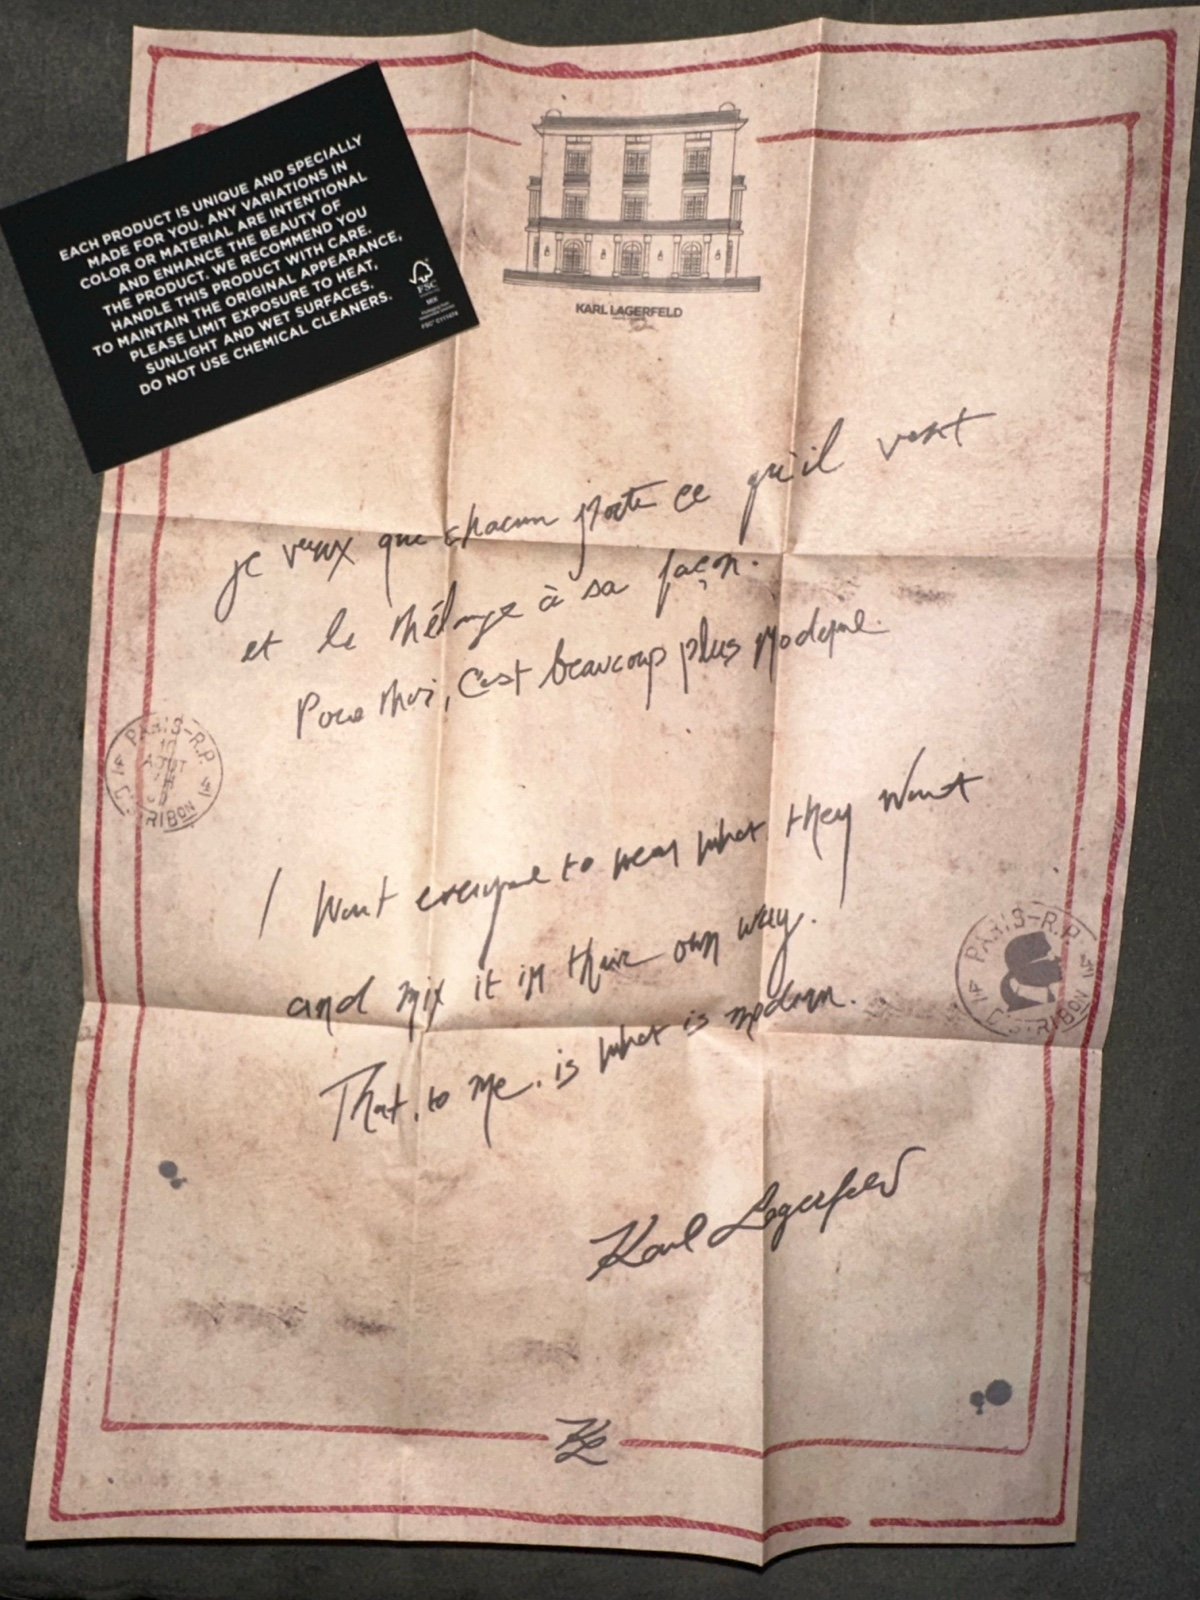 EACH PRODUCT IS UNIQUE AND SPECIALLY
MADE FOR YOU. ANY VARIATIONS IN
COLOR OR MATERIAL ARE INTENTIONAL
AND ENHANCE THE BEAUTY OF
THE PRODUCT. WE RECOMMEND YOU
HANDLE THIS PRODUCT WITH CARE.
TO MAINTAIN THE ORIGINAL APPEARANCE,
PLEASE LIMIT EXPOSURE TO HEAT,
SUNLIGHT AND WET SURFACES.
DO NOT USE CHEMICAL CLEANERS.
FSC
MIX
KARL LAGERFELD
je veux que chacun porte ce qu'il veut
et le mélange à sa façon.
Pour moi, c'est beaucoup plus moderne.
PARIS-R.P.
10
AOUT
I want everyone to wear what they want
and mix it in their own way.
That, to me, is what is modern.
PARIS-R.P.
Karl Lagerfeld
KL